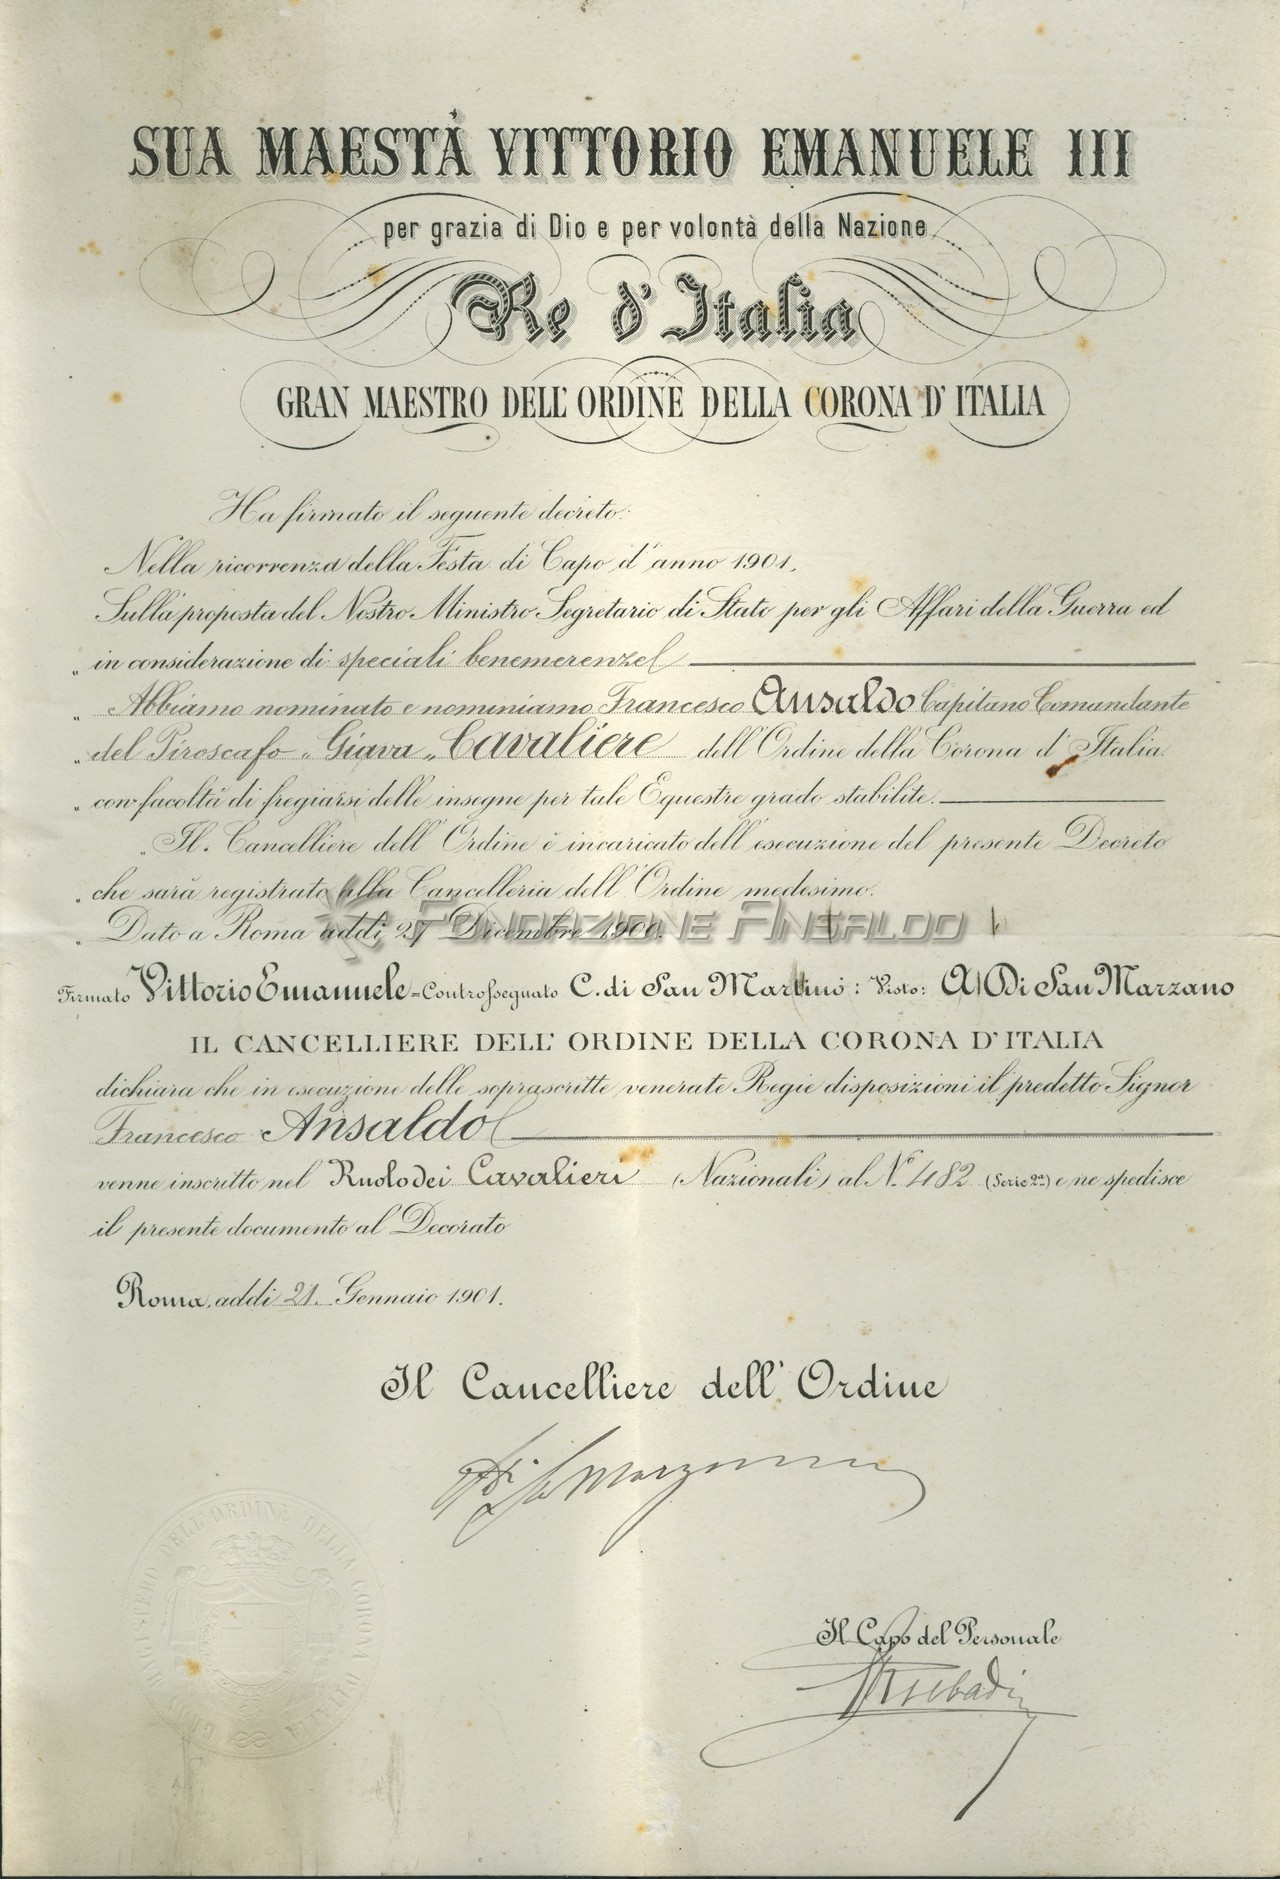 SUA MAESTÀ VITTORIO EMANUELE III
per grazia di Dio e per volontà della Nazione
Re d'Italia
GRAN MAESTRO DELL'ORDINE DELLA CORONA D'ITALIA
Ha firmato il seguente decreto:
Nella ricorrenza della Festa di Capo d'anno 1901,
Sulla proposta del Nostro Ministro Segretario di Stato per gli Affari della Guerra ed
„ in considerazione di speciali benemerenze
„ Abbiamo nominato e nominiamo Francesco Ansaldo Capitano Comandante
„ del Piroscafo „ Giava „ Cavaliere dell'Ordine della Corona d'Italia
„ con facoltà di fregiarsi delle insegne per tale Equestre grado stabilite.
„ Il Cancelliere dell'Ordine è incaricato dell'esecuzione del presente Decreto
„ che sarà registrato alla Cancelleria dell'Ordine medesimo.
FONDAZIONE ANSALDO
„ Dato a Roma addì 27 Dicembre 1900.
Firmato Vittorio Emanuele = Controssegnato C. di San Martino: Visto: A. Di San Marzano
IL CANCELLIERE DELL'ORDINE DELLA CORONA D'ITALIA
dichiara che in esecuzione delle soprascritte venerate Regie disposizioni il predetto Signor
Francesco Ansaldo
venne inscritto nel Ruolo dei Cavalieri (Nazionali) al N.° 482 (Serie 2ª) e ne spedisce
il presente documento al Decorato
Roma, addì 21. Gennaio 1901.
Il Cancelliere dell'Ordine
Il Capo del Personale